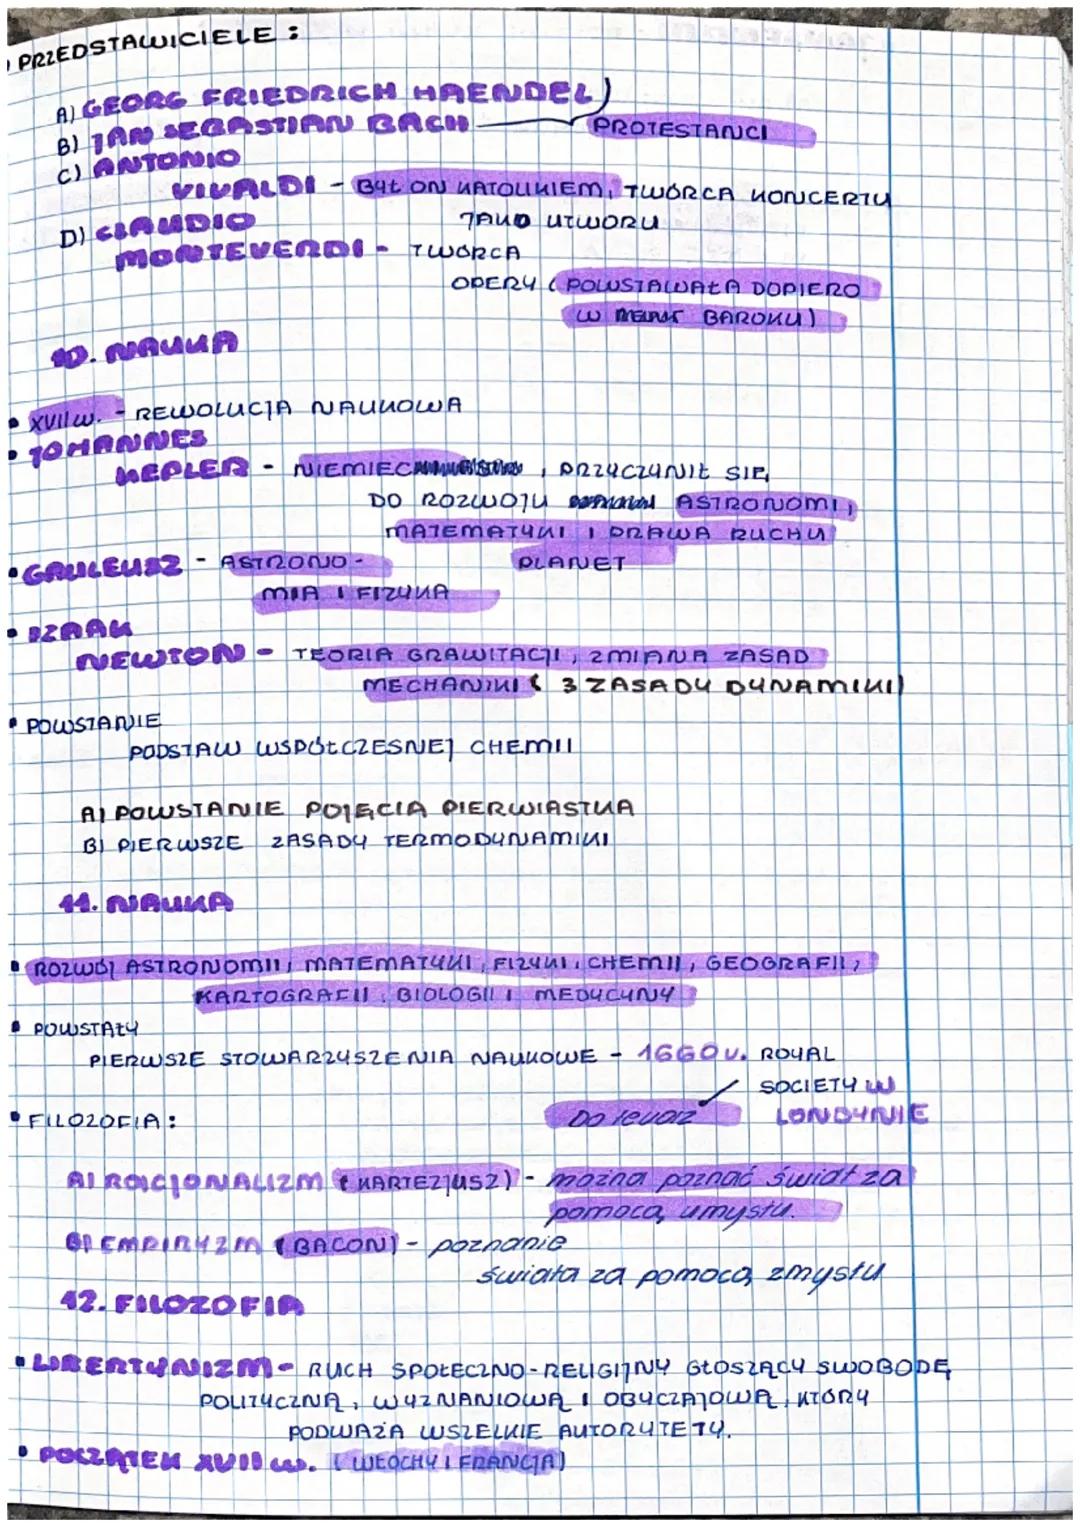 • PRZEDSTAWICIELE :
A) GEORG FRIEDRICH HAENDEL
B) JAN SEBASTIAN BACH
PROTESTANCI
C) ANTONIO
VIVALDI - BYŁ ON KATOLIKIEM, TWÓRCA KONCERTU
JAKO UTWORU
D) CLAUDIO
MONTEVERDI - TWÓRCA
OPERY ( POWSTAWAŁA DOPIERO
W BAROKU)
10. NAUKA
• XVII w. - REWOLUCJA NAUKOWA
• JOHANNES
KEPLER - NIEMIEC , PRZYCZYNIŁ SIĘ
DO ROZWOJU ASTRONOMII,
MATEMATYKI I PRAWA RUCHU
PLANET
• GALILEUSZ - ASTRONO-
MIA I FIZYKA
• IZAAK
NEWTON - TEORIA GRAWITACJI, ZMIANA ZASAD
MECHANIKI ( 3 ZASADY DYNAMIKI)
• POWSTANIE
PODSTAW WSPÓŁCZESNEJ CHEMII
A) POWSTANIE POJĘCIA PIERWIASTKA
B) PIERWSZE ZASADY TERMODYNAMIKI
11. NAUKA
• ROZWÓJ ASTRONOMII, MATEMATYKI, FIZYKI, CHEMII, GEOGRAFII,
KARTOGRAFII, BIOLOGII I MEDYCYNY
• POWSTAŁY
PIERWSZE STOWARZYSZENIA NAUKOWE - 1660 r. ROYAL
SOCIETY W
LONDYNIE
• FILOZOFIA :
A) RACJONALIZM (KARTEZJUSZ) - można poznać świat za
pomocą umysłu.
B) EMPIRYZM (BACON) - poznanie
świata za pomocą zmysłu
12. FILOZOFIA
• LIBERTYNIZM - RUCH SPOŁECZNO-RELIGIJNY GŁOSZĄCY SWOBODĘ
POLITYCZNĄ, WYZNANIOWĄ I OBYCZAJOWĄ, KTÓRY
PODWAŻA WSZELKIE AUTORYTETY.
• POCZĄTEK XVII w. (WŁOCHY I FRANCJA)